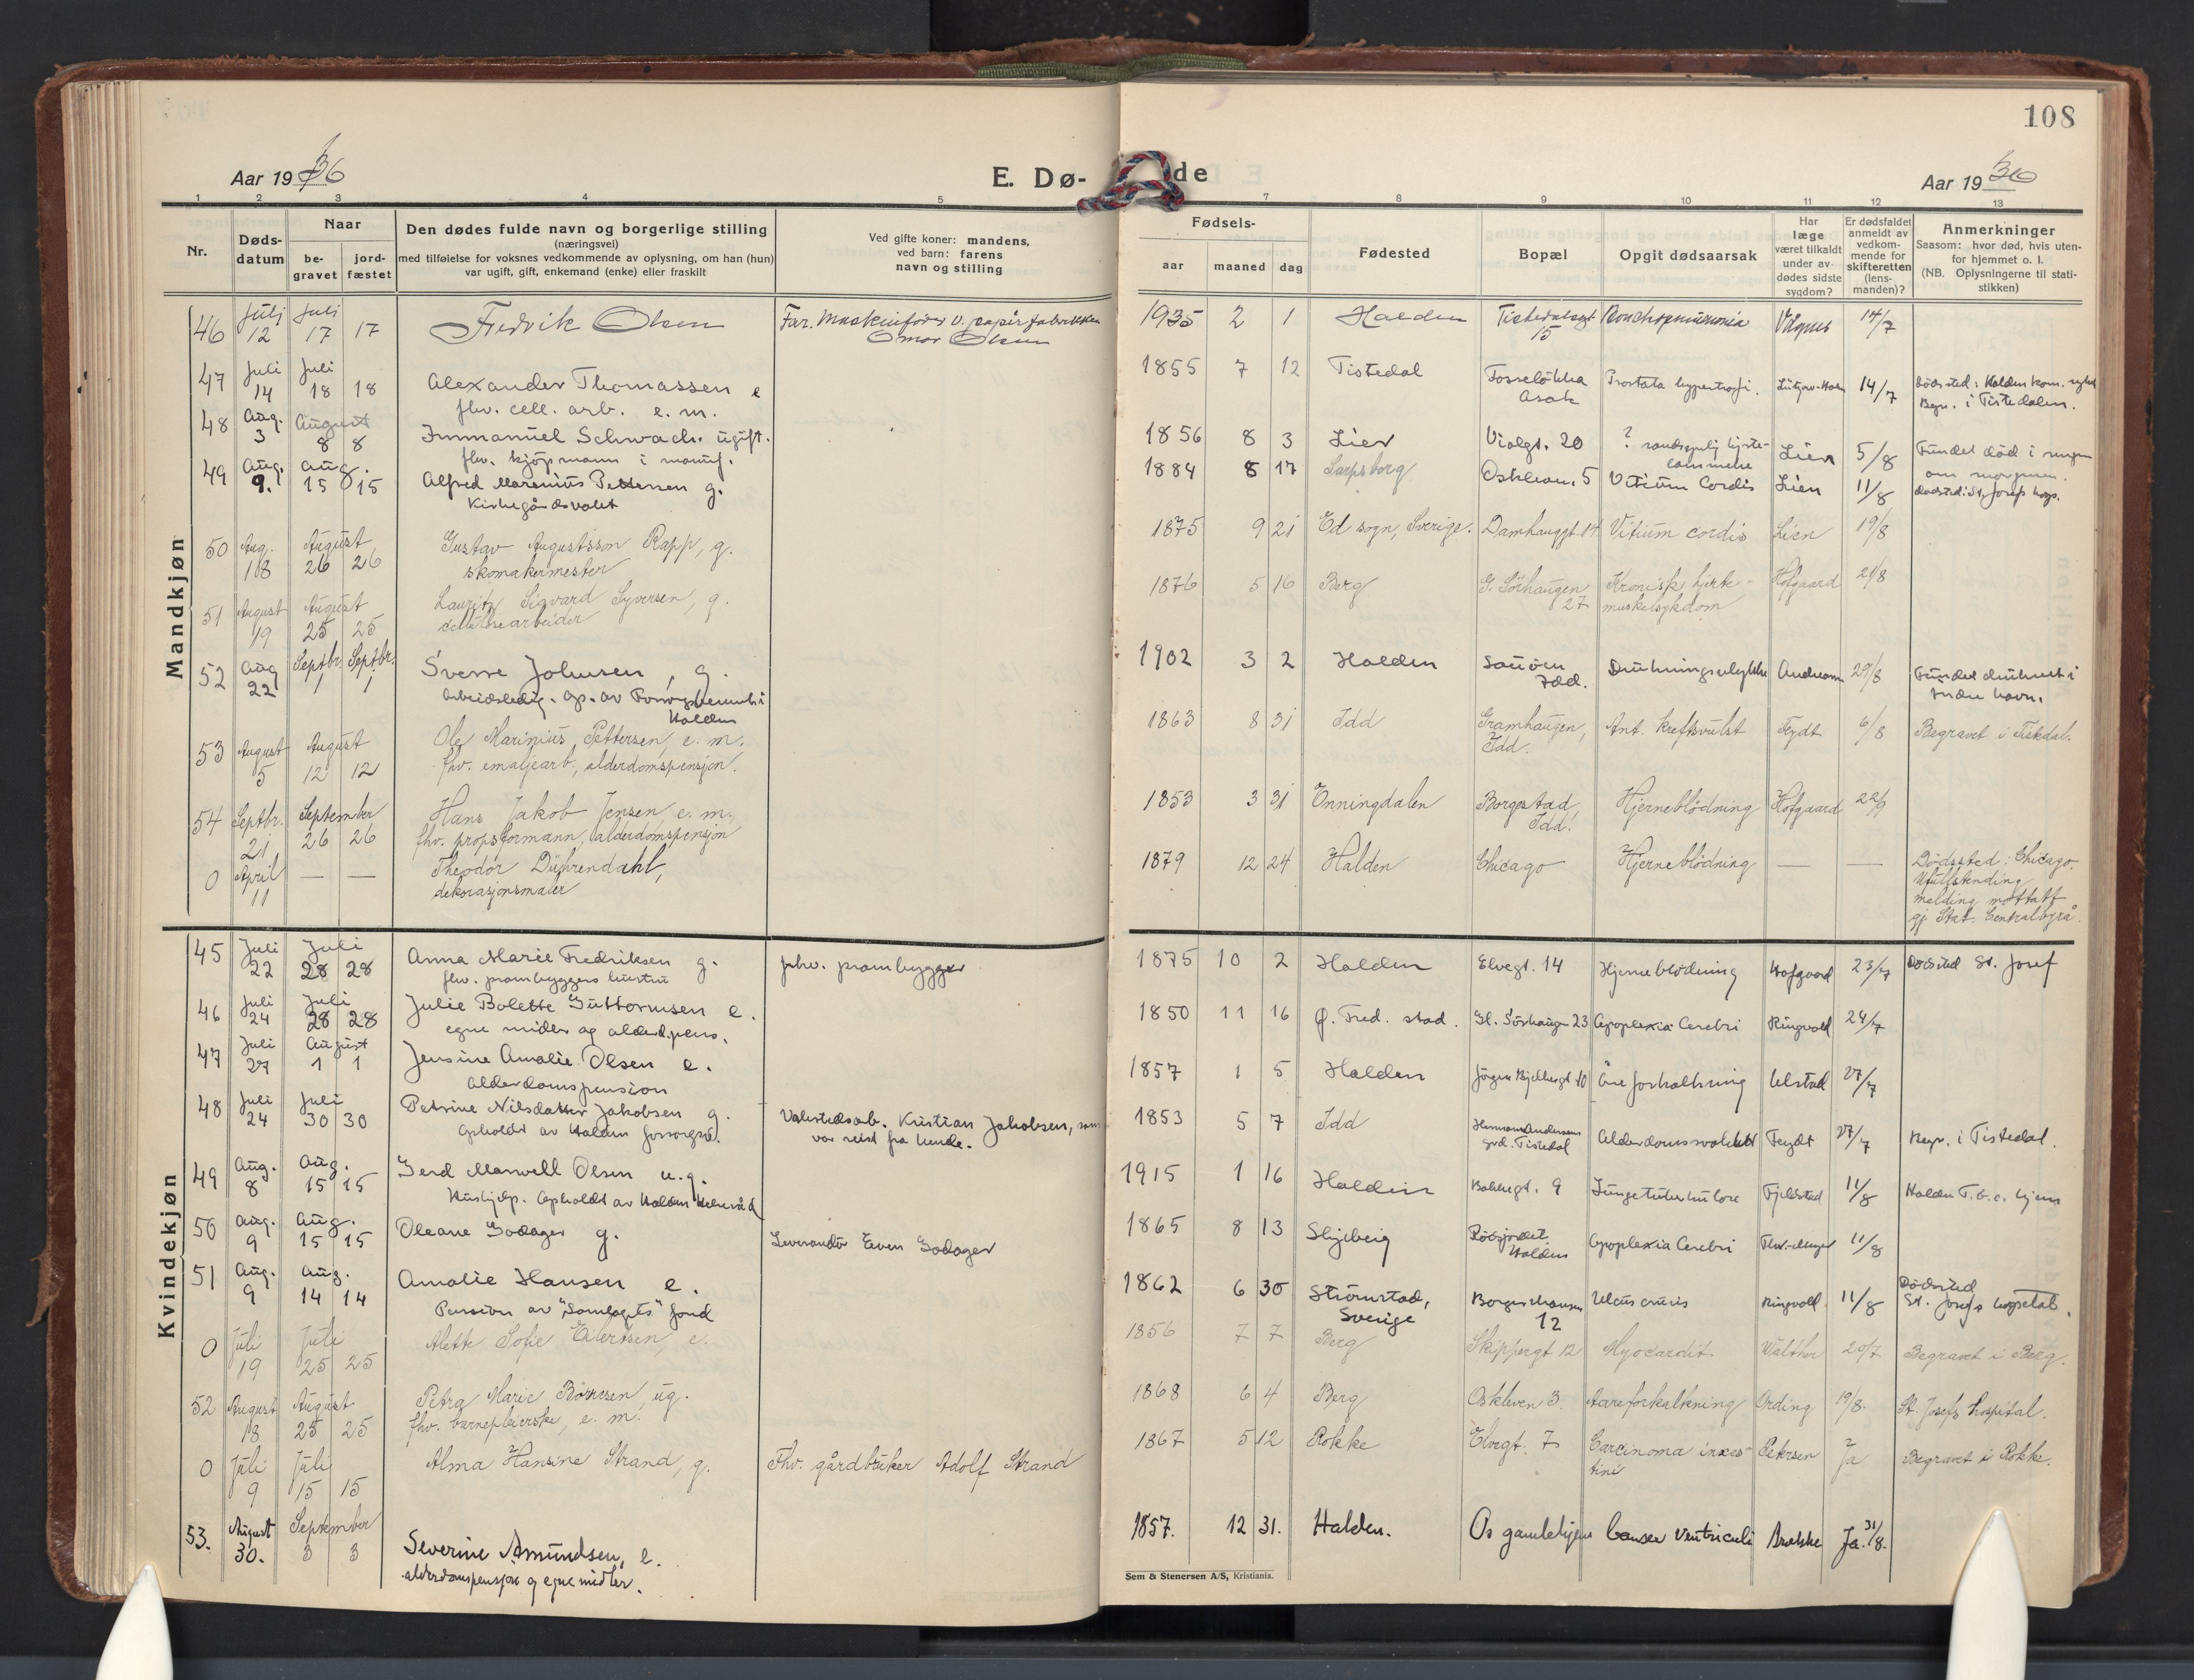 108
Aar 1936
E. Dø-
de
Aar 1936
1 2 3 4 5 7 8 9 10 11 12 13
Nr.
Døds-
datum
Naar
be-
gravet
jord-
fæstet
Den dødes fulde navn og borgerlige stilling
(næringsvei)
med tilføielse for voksnes vedkommende av oplysning, om han (hun)
var ugift, gift, enkemand (enke) eller fraskilt
Ved gifte koner: mandens,
ved barn: farens
navn og stilling
Fødsels-
aar maaned dag
Fødested
Bopæl
Opgit dødsaarsak
Har
læge
været tilkaldt
under av-
dødes sidste
sygdom?
Er dødsfaldet
anmeldt av
vedkom-
mende for
skifteretten
(lens-
manden)?
Anmerkninger
Saasom: hvor død, hvis uten-
for hjemmet o. l.
(NB. Oplysningerne til stati-
stikken)
Mandkjøn
46 Juli 12 Juli 17 17 Fredrik Olsen Far. Maskinfører v. papirfabrikken
Omar Olsen 1935 2 1 Halden Tistedalsgt 15 Bronchopneumonia 14/7
47 Juli 14 Juli 18 18 Alexander Thomassen e
fhv. cell. arb. e. m. 1855 7 12 Tistedal Fosseløkka
Asak Prostata hypertrofi. 14/7 Dødsted: Halden kom. sykeh.
Begr. i Tistedalen.
48 Aug. 3 August 8 8 Immanuel Schwach. ugift.
fhv. kjøpmann i manuf. 1856 8 3 Lier Violgt. 20 ? sandsynlig hjerte-
lammelse Lien 5/8 Fundet død i sengen
om morgenen.
49 Aug. 9. Aug. 15 15 Alfred Marenius Pettersen g.
Kirkegårdsvakt 1884 8 17 Sarpsborg Oskleven. 5 Vitium Cordis Lien 11/8 Dødsted: St. Josefs hosp.
50 Aug. 18 August 26 26 Gustav Augustsson Rapp, g.
skomakermester 1875 9 21 Ed sogn, Sverige. Damhauggt. 14 Vitium cordis Lien 19/8
51 August 19 August 25 25 Lauritz Sigvard Syversen, g.
cellulosearbeider 1876 5 16 Berg G. Sørhaugen
27 Kronisk hjerte-
muskelsykdom Hofgaard 21/8
52 Aug 22 Septbr. 1 Septbr. 1 Sverre Johnsen, g.
Arbeidsledig. Op. av Forsorgsvesenet i
Halden 1902 3 2 Halden Sauøen
Idd. Drukningsulykke 29/8 Fundet druknet i
indre havn.
53 August 5 August 12 12 Ole Marinius Pettersen, e. m.
fhv. emaljearb., alderdomspensjon. 1863 8 31 Idd Gramhaugen,
Idd. Ant. kreftsvulst Feydt 6/8 Begravet i Tistedal.
54 Septbr. 21 September 26 26 Hans Jakob Jensen, e. m.
fhv. propsformann, alderdomspensjon 1853 3 31 Enningdalen Borgestad
Idd. Hjerneblødning Hofgaard 22/9
0 April 11 — — Theodor Dührendahl,
dekorasjonsmaler 1879 12 24 Halden Chicago Hjerneblødning — — Dødssted: Chicago.
Ufullstending
melding mottatt
gj. Stat. Centralbyrå.
Kvindekjøn
45 Juli 22 Juli 28 28 Anna Marie Fredriksen g.
fhv. prambyggers hustru fhv. prambygger 1875 10 2 Halden Elvegt. 14 Hjerneblødning Hofgaard 23/7 Dødsted St. Josef
46 Juli 24 Juli 28 28 Julie Bolette Guttormsen e.
egne midler og alderd.pens. 1850 11 16 Ø. Fred. stad. Gl. Sørhaugen 23 Apoplexia Cerebri Ringvold 24/7
47 Juli 27 August 1 1 Jensine Amalie Olsen e.
Alderdomspension 1857 1 5 Halden Jørgen Bjelkesgt 10 Åreforkalkning Ulstad 27/7
48 Juli 24 Juli 30 30 Petrine Nilsdatter Jakobsen g.
opholdt av Halden forsorgsv. Valsetedsarb. Kristian Jakobsen, som
var reist fra hende. 1853 5 7 Idd Herman Andersens
grd. Tistedal Alderdomssvakhet Feydt 27/7 Begr. i Tistedal.
49 Aug. 8 Aug. 15 15 Gerd Maxwell Olsen u.g.
Hushjelp. Opholdt av Halden Helseråd 1915 1 16 Halden Bakkegt. 9 Lungetuberkulose Fjeldstad 11/8 Halden T.b.c. hjem
50 Aug. 9 Aug. 15 15 Oleane Godager g. Leverandør Even Godager 1865 8 13 Skjeberg Rødsjordet
Halden Apoplexia Cerebri 11/8
51 Aug. 9 Aug. 14 14 Amalie Hansen e.
Pension av "Samlagets" fond 1862 6 30 Strømstad,
Sverige Borgershausen
12 Ulcus cruris Ringvold. 11/8 Dødsted
St. Josefs hospital.
0 Juli 19 Juli 25 25 Alette Sofie Eilertsen, e. 1856 7 7 Berg Skippergt 12 Myocardit Walther 20/7 Begravet i Berg.
52 August 18 August 25 25 Petra Marie Børresen, ug.
fhv. barnepleierske, e. m. 1868 6 4 Berg Oskleven 3. Aareforkalkning Ording 19/8. St. Josefs hospital.
0 Juli 9 Juli 15 15 Alma Hansine Strand, g. Fhv. gårdbruker Adolf Strand 1867 5 12 Rokke Elvegt. 7 Carcinoma intes-
tini Petersen Ja Begravet i Rokke.
53. August 30. September 3 3 Severine Amundsen, e.
alderdomspensjon og egne midler. 1857. 12 31. Halden. Os gamlehjem Cancer Ventriculi Ja. 31/8.
Sem & Stenersen A/S, Kristiania.